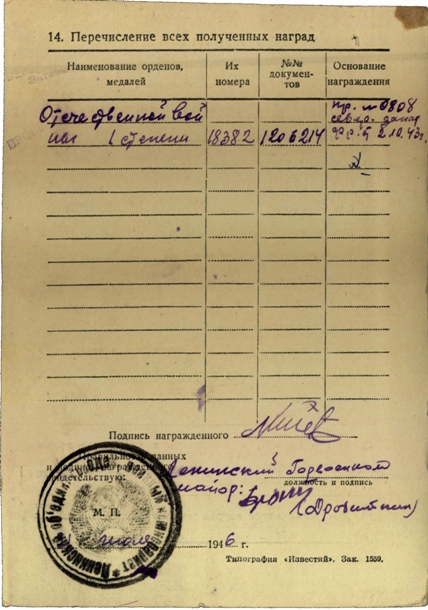 14. Перечисление всех полученных наград
Наименование орденов, медалей
Их номера
№№ документов
Основание награждения
Отечественной вой
ны I степени 18382 1206214
пр. № 0808
север. запад
2.10.43г.
Подпись награжденного
Правильность данных
и подписи награжденного
свидетельствую:
Ленинский Горвоенком
майор:
должность и подпись
М. П.
1946 г.
Типография «Известий». Зак. 1559.